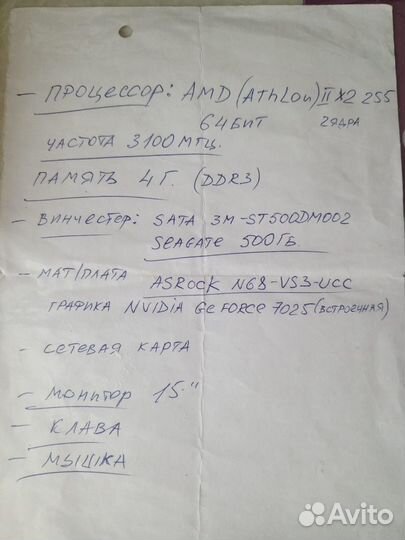 - ПРОЦЕССОР: AMD (AthLon) II X2 255
64 БИТ 2 ЯДРА
ЧАСТОТА 3100 МГЦ.
ПАМЯТЬ 4 Г. (DDR3)
- ВИНЧЕСТЕР: SATA 3М-ST500DM002
SEAGATE 500 ГБ.
- МАТ/ПЛАТА ASRock N68-VS3-UCC
ГРАФИКА NVIDIA GeFORCE 7025 (ВСТРОЕННАЯ)
- СЕТЕВАЯ КАРТА
- МОНИТОР 15"
- КЛАВА
- МЫШКА
Avito